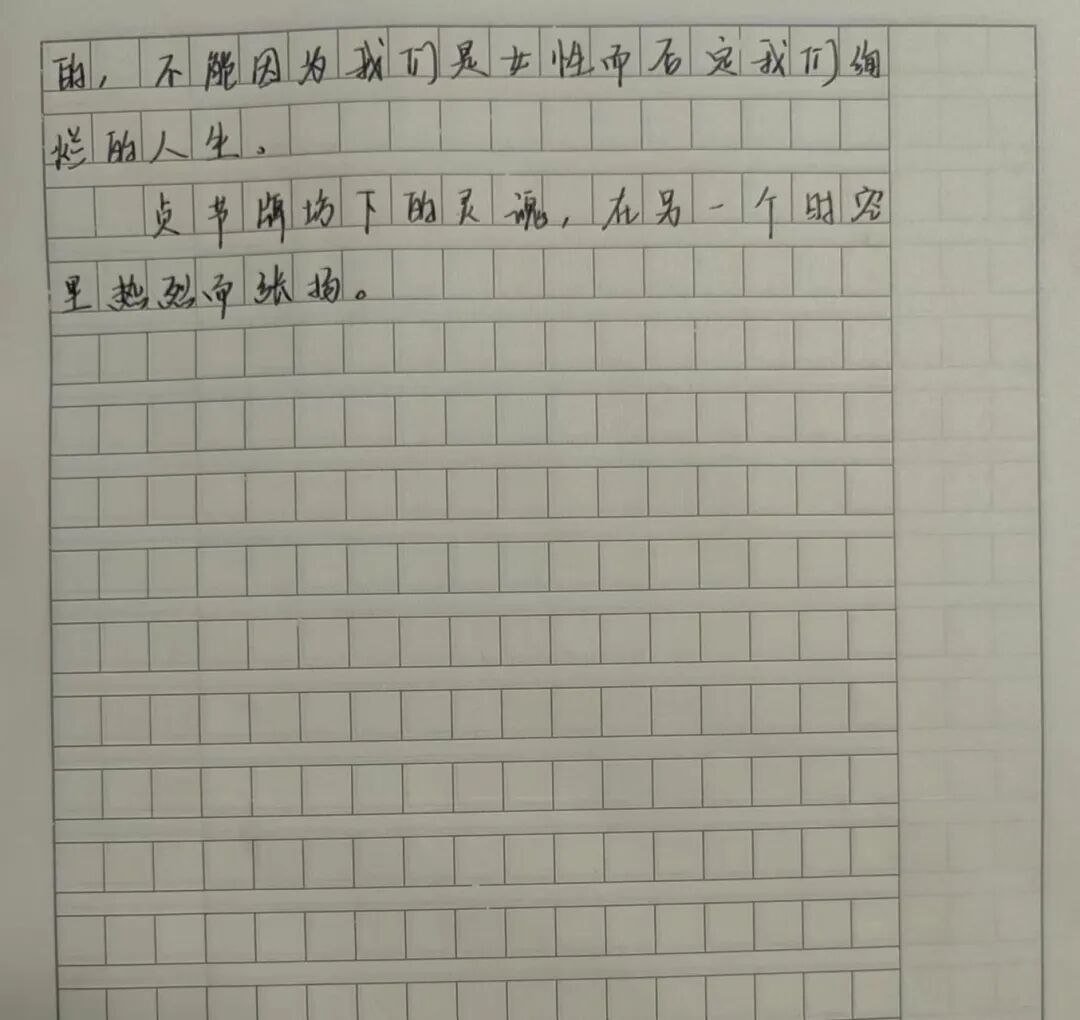 的，不能因为我们是女性而否定我们绚
烂的人生。
贞节牌坊下的灵魂，在另一个时空
里热烈而张扬。